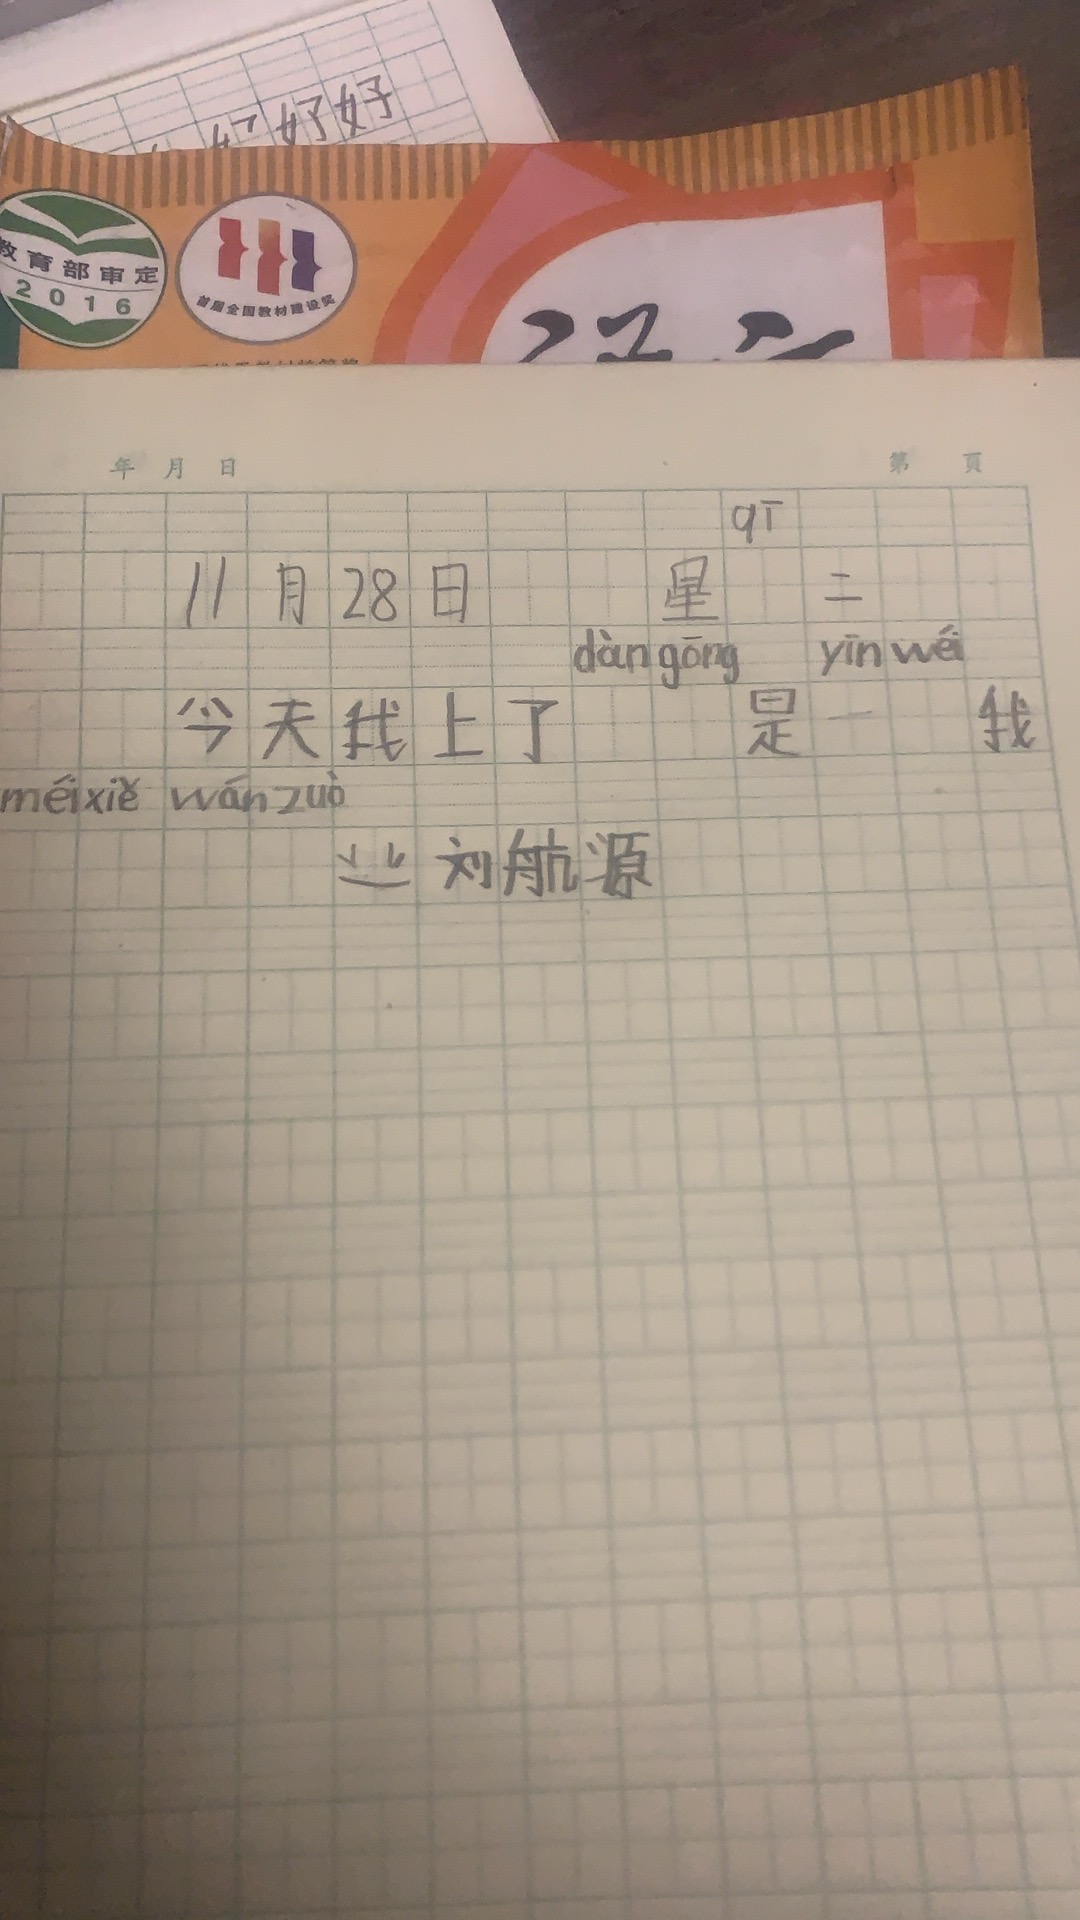 好好
教育部审定
2016
首届全国教材建设奖
年 月 日 第 頁
qī
11月28日 星 二
dàn gōng yīn wéi
今天我上了 是一 我
méi xiě wán zuò
业 刘航源